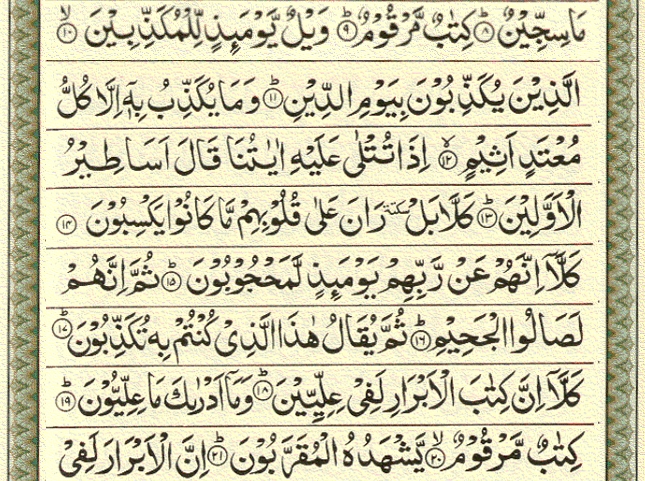 مَا سِجِّيْنٌ ؕ ﴿۸﴾ كِتٰبٌ مَّرْقُوْمٌ ؕ ﴿۹﴾ وَيْلٌ يَّوْمَئِذٍ لِّلْمُكَذِّبِيْنَ ۙ ﴿۱۰﴾
الَّذِيْنَ يُكَذِّبُوْنَ بِيَوْمِ الدِّيْنِ ؕ ﴿۱۱﴾ وَمَا يُكَذِّبُ بِهٖۤ اِلَّا كُلُّ
مُعْتَدٍ اَثِيْمٍ ۙ ﴿۱۲﴾ اِذَا تُتْلٰى عَلَيْهِ اٰيٰتُنَا قَالَ اَسَاطِيْرُ
الْاَوَّلِيْنَ ؕ ﴿۱۳﴾ كَلَّا بَلْ سكتة رَانَ عَلٰى قُلُوْبِهِمْ مَّا كَانُوْا يَكْسِبُوْنَ ﴿۱۴﴾
كَلَّاۤ اِنَّهُمْ عَنْ رَّبِّهِمْ يَوْمَئِذٍ لَّمَحْجُوْبُوْنَ ؕ ﴿۱۵﴾ ثُمَّ اِنَّهُمْ
لَصَالُوا الْجَحِيْمِ ؕ ﴿۱۶﴾ ثُمَّ يُقَالُ هٰذَا الَّذِىْ كُنْتُمْ بِهٖ تُكَذِّبُوْنَ ؕ ﴿۱۷﴾
كَلَّاۤ اِنَّ كِتٰبَ الْاَبْرَارِ لَفِىْ عِلِّيِّيْنَ ؕ ﴿۱۸﴾ وَمَاۤ اَدْرٰىكَ مَا عِلِّيُّوْنَ ؕ ﴿۱۹﴾
كِتٰبٌ مَّرْقُوْمٌ ۙ ﴿۲۰﴾ يَّشْهَدُهُ الْمُقَرَّبُوْنَ ؕ ﴿۲۱﴾ اِنَّ الْاَبْرَارَ لَفِىْ